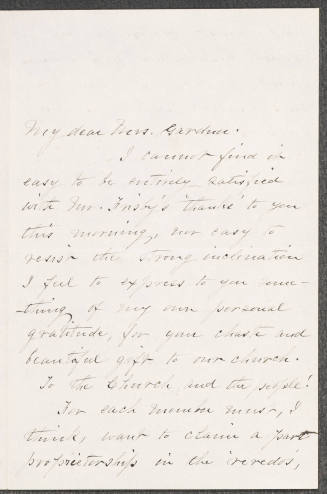 My dear Mrs. Gardner.
I cannot find it
easy to be entirely satisfied
with Mr. 'thanks' to you
this morning, nor easy to
resist the strong inclination
I feel to express to you some-
-thing of my own personal
gratitude, for your chaste and
beautiful gift to our church.
To the Church, and the people!
For each member must, I
think, want to claim a part
proprietorship in the 'reredos',